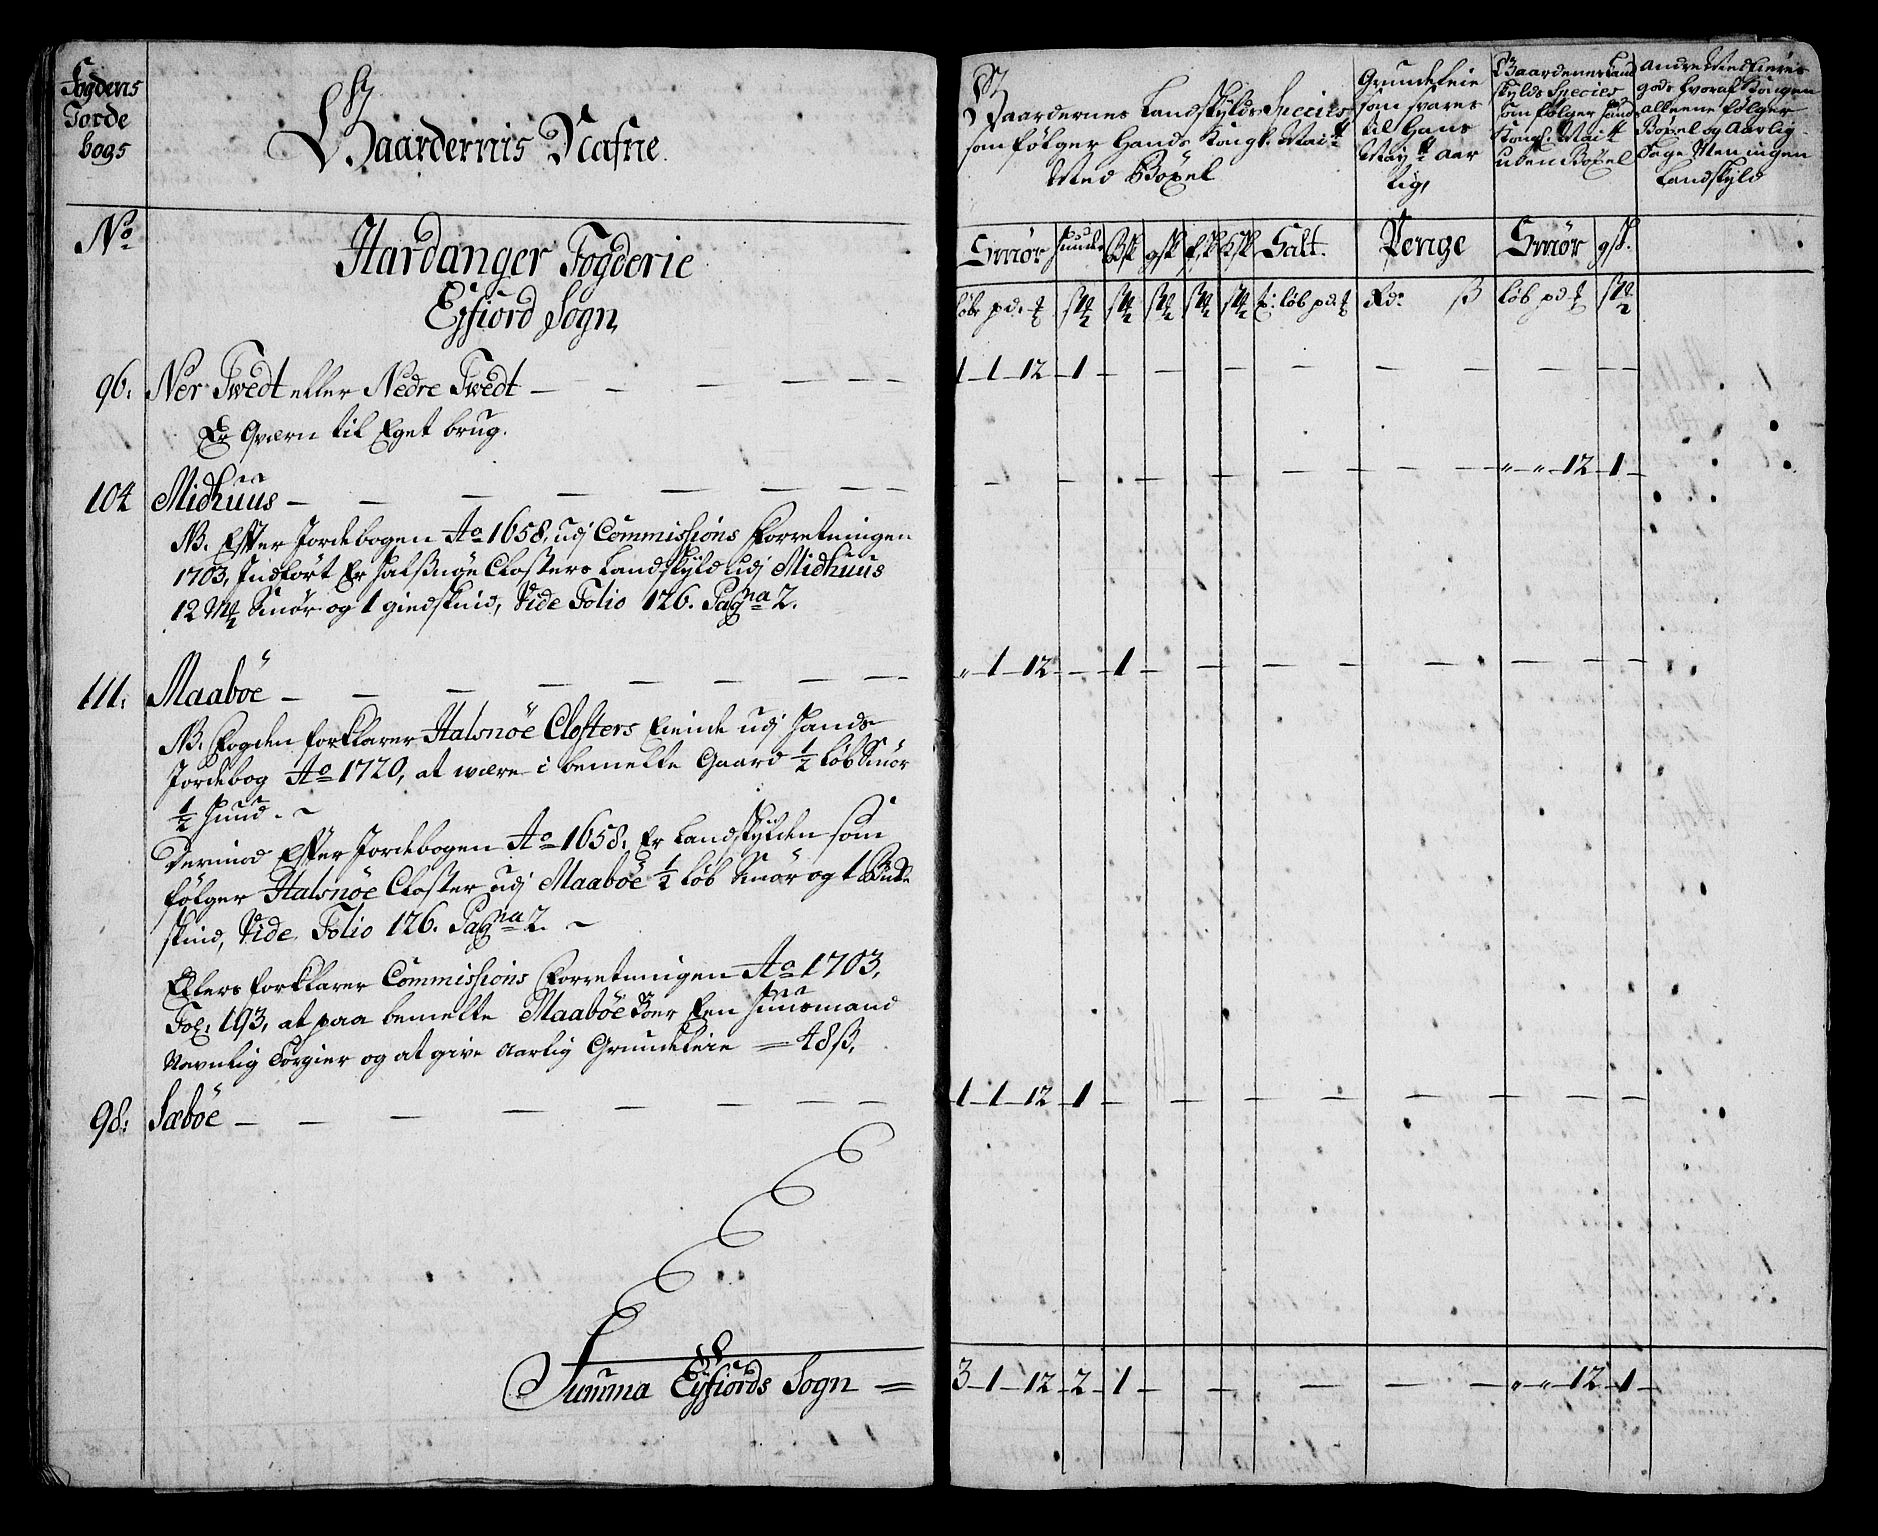 Fogdens
Jorde
bogs
No
Gaardernis Nafne
Hardanger Fogderie
Ejfiord Sogn
96. Ner Twedt eller Nedre Twedt — — — — —
Er Qværn til Eget brug.
104 Midhuus — — — — — — — —
NB. Efter Jordebogen Ao 1658, udj Commissions Forretningen
1703, Indført Er Halsnøe Closters Landskyld udj Midhuus
12 Mk Smør og 1 giedskind, Vide Folio 126. Pagna 2.
111. Maaböe — — — — — — — —
NB. Fogden forklarer Halsnöe Closters Eiende udj Hands
Jordebog Ao 1720, at være i bemelte Gaard ½ løb Smör
½ Huud. ~
Derimod Efter Jordebogen Ao 1658. Er Landskylden som
følger Halsnöe Closter udj Maaböe ½ løb Smör og 1 Bukke
skind, Vide Folio 126. Pagna 2. ~
Ellers forklarer Commissions Forretningen Ao 1703,
Fol. 193, at paa bemelte Maaböe Boer Een Huusmand
Navnlig Torgier og at give Aarlig Grundeleie = 48 ß.
98. Sæböe — — — — — — —
Summa Ejfiords Sogn =
Gaardernes Landskylds Species
som følger Hands Kongl. Maitt
Med Böxel
Grundeleie
som svares
til Hans
Maytt Aar
lig,
Gaardenes Land
skylds Species
som følger Hands
Kongl. Maitt
uden Böxel
Andre Med Eieris
gods hvoraf Kongen
alleene følger
Böxel og Aarlig
Tage Men ingen
Landskyld
Smör Huude Bsk gsk fsk Ksk Salt. Penge Smör gsk.
løb pd. t: løb pd. Rd. ß løb pd
1 — 1 — 12 — 1 — — — — — — — —
— — — — — — — — „ „ 12 — 1 —
„ 1 — 12 — — 1 — — — — — — — —
1 — 1 — 12 — 1 — — — — — — — —
3 — 1 — 12 — 2 — 1 — — — — — „ „ 12 — 1 —